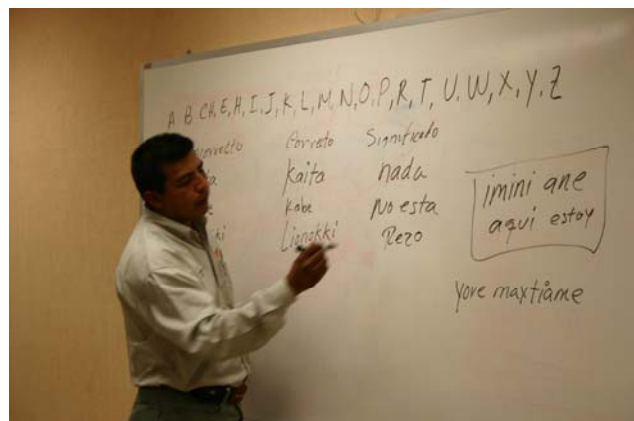 A B CH, E, H, I, J, K, L, M, N, O, P, R, T, U, W, X, Y, Z
Correcto Significado
Kaita nada
Kabe No esta
Lionokki Rezo
imini ane
aqui estoy
Yore maxtiame